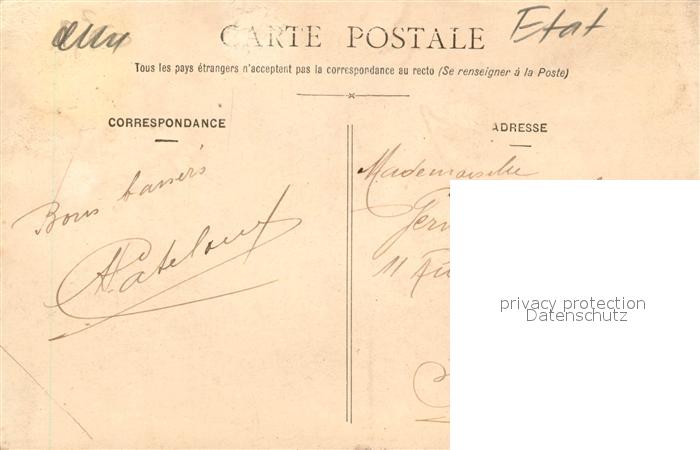 CARTE POSTALE
Etat
Tous les pays étrangers n'acceptent pas la correspondance au recto (Se renseigner à la Poste)
CORRESPONDANCE
ADRESSE
Bons baisers
Mademoiselle
11
privacy protection
Datenschutz